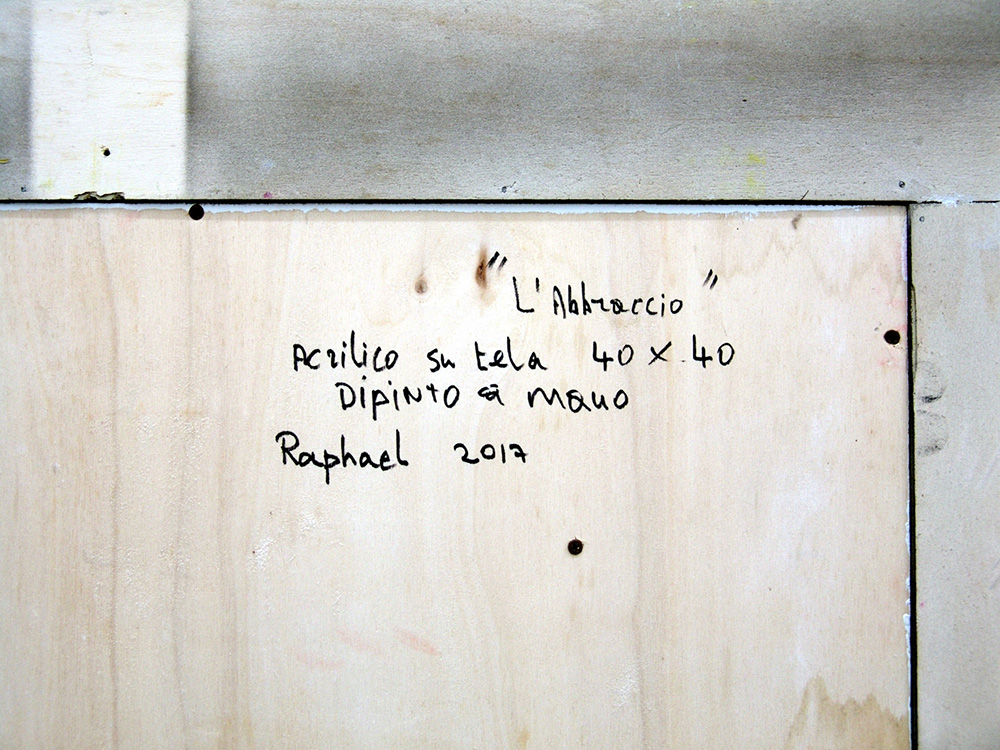 "L'Abbraccio"
Acrilico su tela 40 x 40
DIPINTO a mano
Raphael 2017